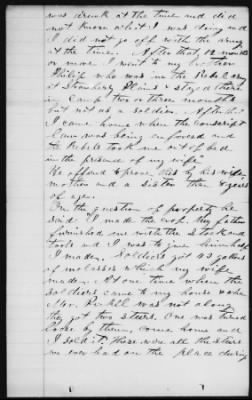 was drunk at the time and did
not know what I was doing and
I did not go off with the army
at the time. After that, 12 months
or more I went to my brother
Philip who was in the Rebel army
at Strawberry Plains & stayed there
in Camp two or three months
but not as a soldier. After that
I came home when the Conscript
law was being enforced and
the Rebels took me out of bed
in the presence of my wife"
He offered to prove this by his wife,
mother and a sister then 8 years
of age.
On the question of property he
said "I made the crop. My father
furnished me with the stock and
tools and I was to give him half
I made. Soldiers got 25 gallons
of molasses which my wife
made. At one time when the
soldiers came to my house when
Mr. Pickll was not along
they got two steers. One was turned
loose by them, come home and
I sold it. These were all the steers
we ever had on the place during